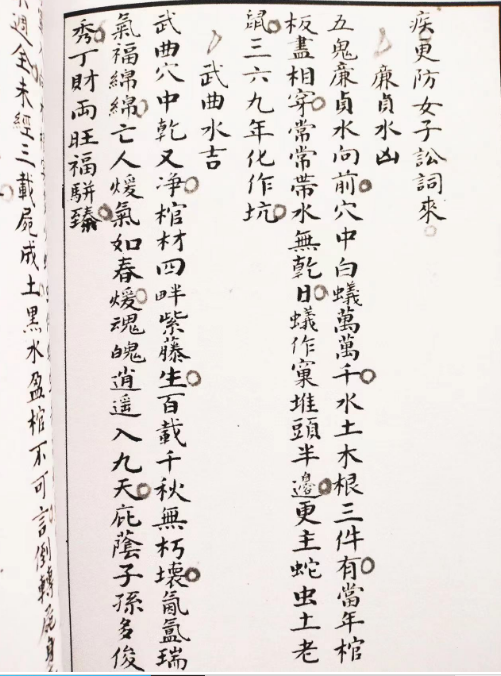 疾更防女子訟詞來
廉貞水凶
五鬼廉貞水向前穴中白蟻萬萬千水土木根三件有當年棺
板盡相穿常常帶水無乾日蟻作窠堆頭半邊更主蛇虫土老
鼠三六九年化作坑
武曲水吉
武曲穴中乾又净棺材四畔紫藤生百載千秋無朽壞氤氳瑞
氣福綿綿亡人煖氣如春煖魂魄逍遥入九天庇蔭子孫多俊
秀丁財両旺福駢臻
週全未經三載屍成土黑水盈棺不可言倒轉屍